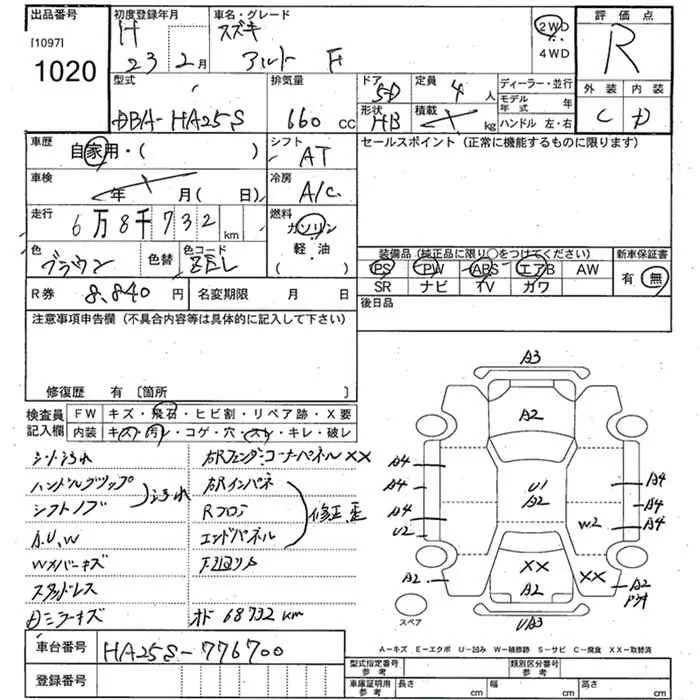 出品番号
[1097]
1020
初度登録年月
H
23 2月
車名・グレード
スズキ
アルト F
2WD
4WD
評価点
R
外装 内装
C D
型式
DBA-HA25S
排気量
660 cc
ドア
5D
定員
4 人
形状
HB
積載
kg
ディーラー・並行
モデル年式 年
ハンドル 左・右
車歴
自家用・( )
シフト
AT
セールスポイント (正常に機能するものに限ります)
車検
年 月(日)
冷房
A/C
走行
6万8千732 km
燃料
ガソリン
軽・油
( )
色
ブラウン
色替
色コード
ZEL
装備品(純正品に限り○をつけてください)
新車保証書
PS PW ABS エアB AW
SR ナビ TV カワ
有 無
R券 8,840 円
名変期限 月 日
後日品
注意事項申告欄(不具合内容等は具体的に記入して下さい)
修復歴 有〔箇所 〕
検査員記入欄
FW キズ・飛石・ヒビ割・リペア跡・X要
内装 キズ・汚レ・コゲ・穴・スレ・キレ・破レ
シート汚れ
ハンドルグリップ
シフトノブ
汚れ
A.U.W
Wメバーキズ
スタッドレス
Dミラーキズ
右RフェンダコーナーパネルXX
右Rインパネ
Rフロア
エンドパネル
修正、歪
下廻りサ
オド 68732 km
A3
A2
A4
A4
A4
U2
A2
U1
A2
W2
A4
A4
A4
XX
A2
XX
A2
UA3
スペア
A-キズ E-エクボ U-凹み W-補修跡 S-サビ C-腐食 XX-取替済
車台番号
HA25S-776700
登録番号
型式指定番号 参考
類別区分番号 参考
車庫証明用 参考
長さ cm
幅 cm
高さ cm